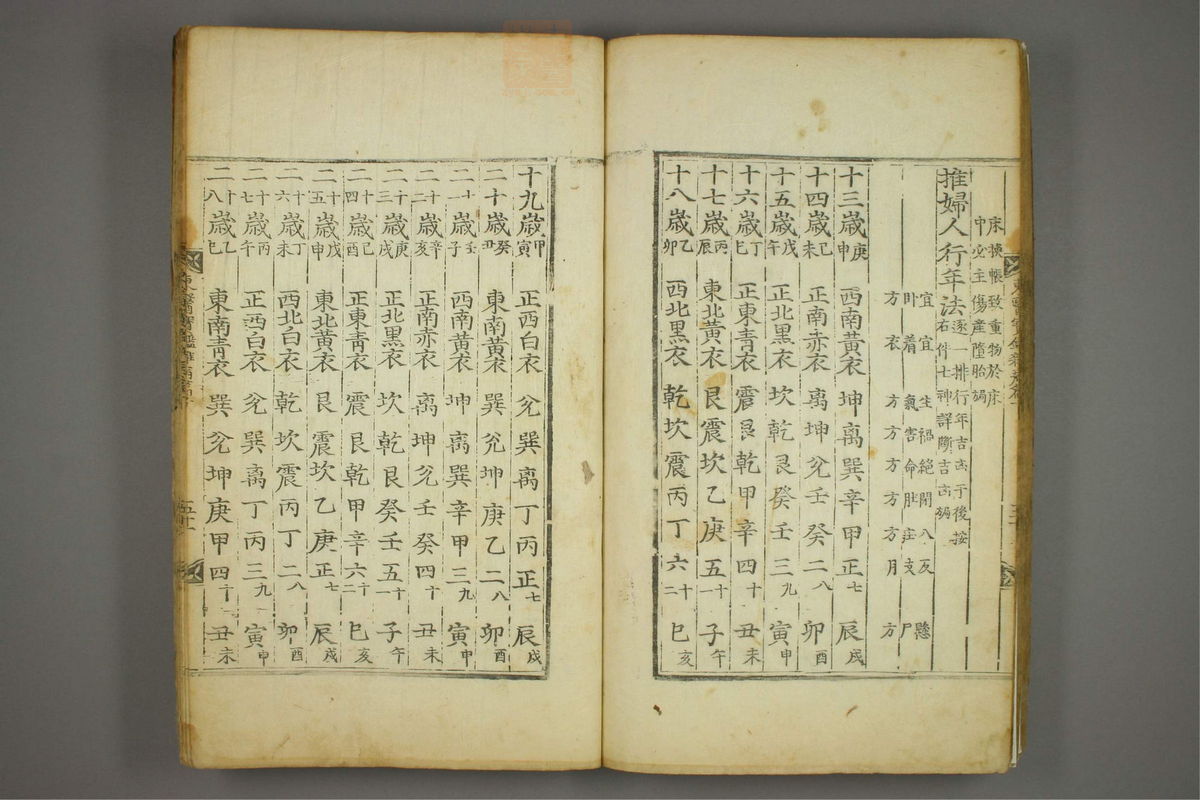 床換帳致重物於床
中必主傷産墮胎禍
推婦人行年法
逐一排行年吉凶于後按
右件七神詳斷吉凶禍
宜宜生禍絶閉八反懸
卧着氣害命肚壮支尸
方衣方方方方方月方
十三歲庚申 西南黃衣 坤离巽辛甲正七 辰戌
十四歲己未 正南赤衣 离坤兊壬癸二八 卯酉
十五歲戊午 正北黑衣 坎乾艮癸壬三九 寅申
十六歲丁巳 正東青衣 震艮乾甲辛四十 丑未
十七歲丙辰 東北黃衣 艮震坎乙庚五十一 子午
十八歲乙卯 西北黑衣 乾坎震丙丁六十二 巳亥
十九歲甲寅 正西白衣 兊巽离丁丙正七 辰戌
二十歲癸丑 東南黃衣 巽兊坤庚乙二八 卯酉
二十一歲壬子 西南黃衣 坤离巽辛甲三九 寅申
二十二歲辛亥 正南赤衣 离坤兊壬癸四十 丑未
二十三歲庚戌 正北黑衣 坎乾艮癸壬五十一 子午
二十四歲己酉 正東青衣 震艮乾甲辛六十二 巳亥
二十五歲戊申 東北黃衣 艮震坎乙庚正七 辰戌
二十六歲丁未 西北白衣 乾坎震丙丁二八 卯酉
二十七歲丙午 正西白衣 兊巽离丁丙三九 寅申
二十八歲乙巳 東南青衣 巽兊坤庚甲四十 丑未